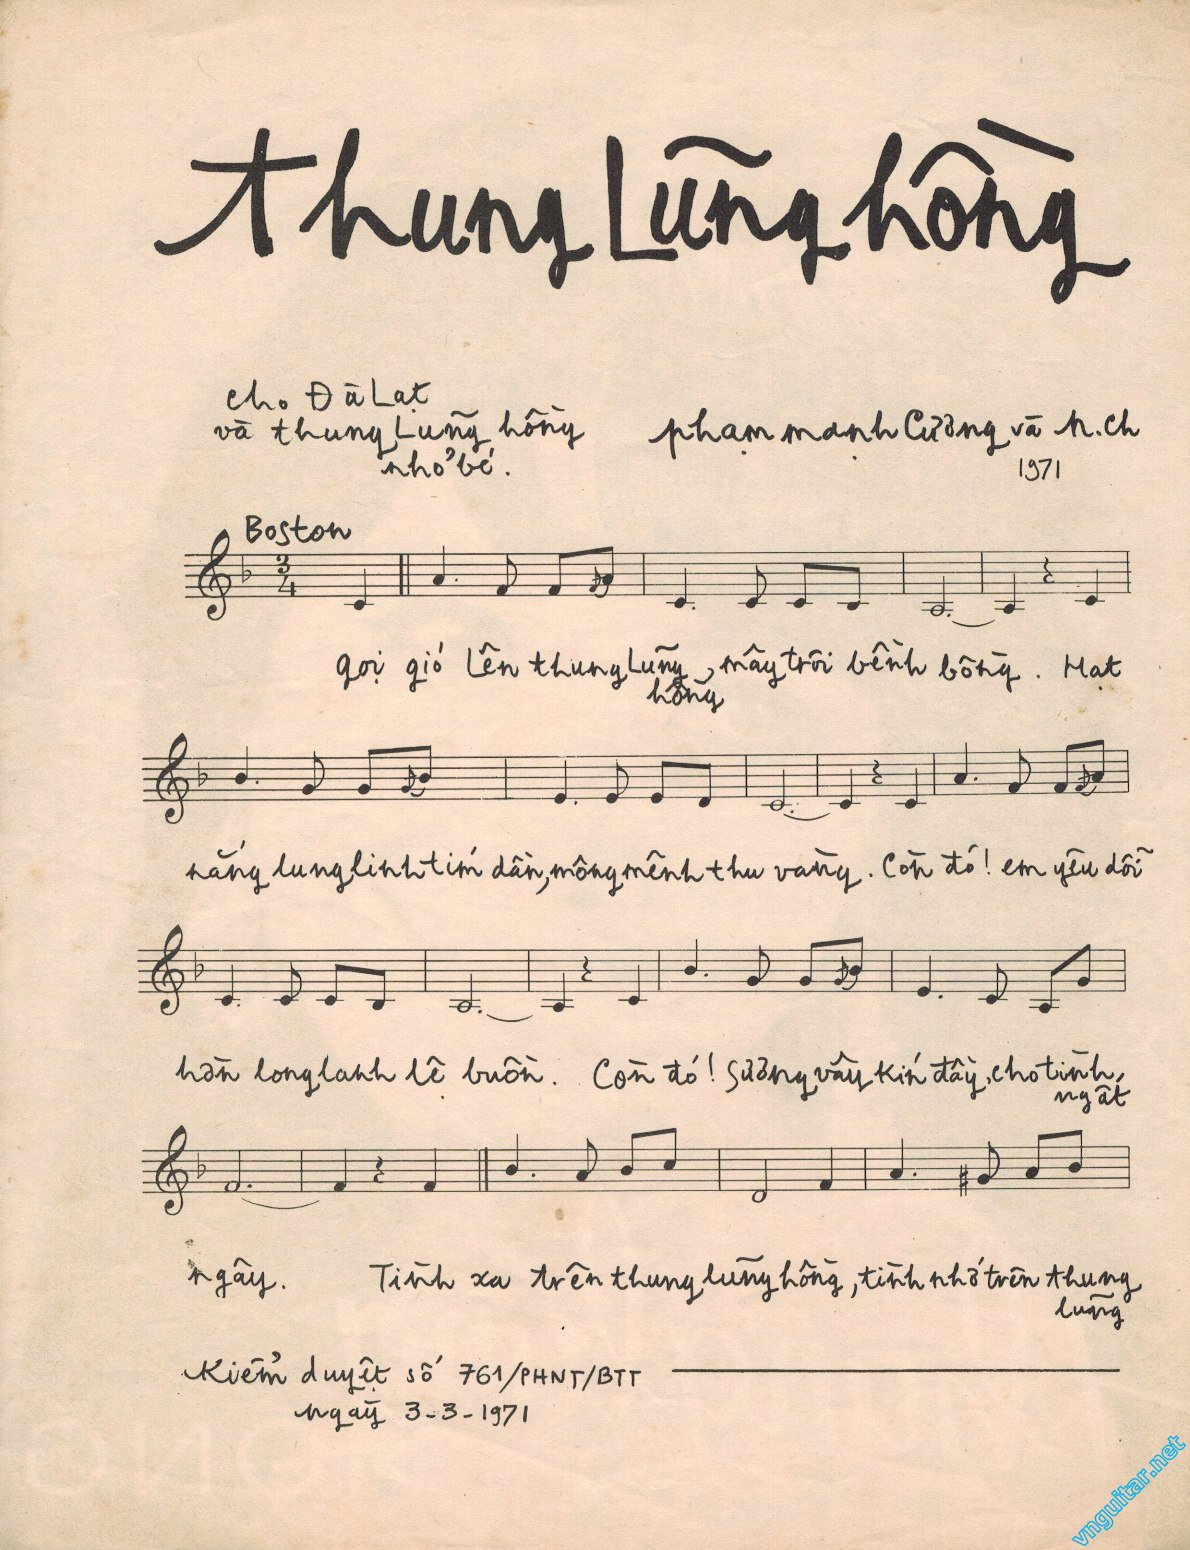 Thung Lũng hồng
cho Đà Lạt
và thung Lũng hồng
nhỏ bé.
phạm mạnh Cương và N.Ch
1971
Boston
3
4
gọi gió Lên thung Lũng hồng, mây trôi bềnh bồng. Hạt
nắng lung linh tím dần, mông mênh thu vàng. Còn đó! em yêu dỗi
hờn long lanh lệ buồn. Còn đó! Sương vây kín đầy, cho tình, ngất
ngây. Tình xa trên thung lũng hồng, tình nhớ trên thung lũng
Kiểm duyệt số 761/PHNT/BTT
ngày 3-3-1971
vnguitar.net